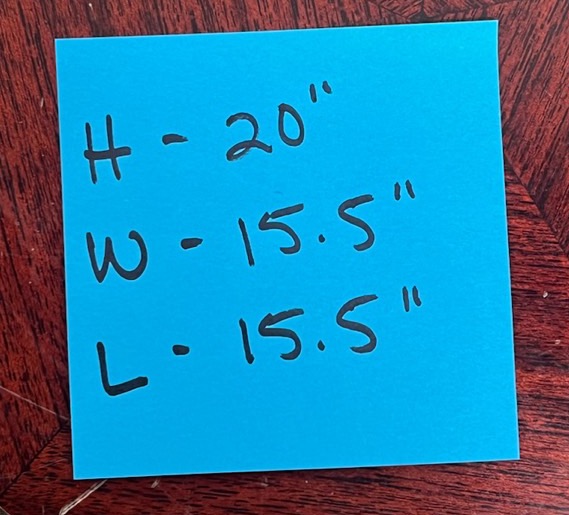 H - 20"
W - 15.5"
L - 15.5"